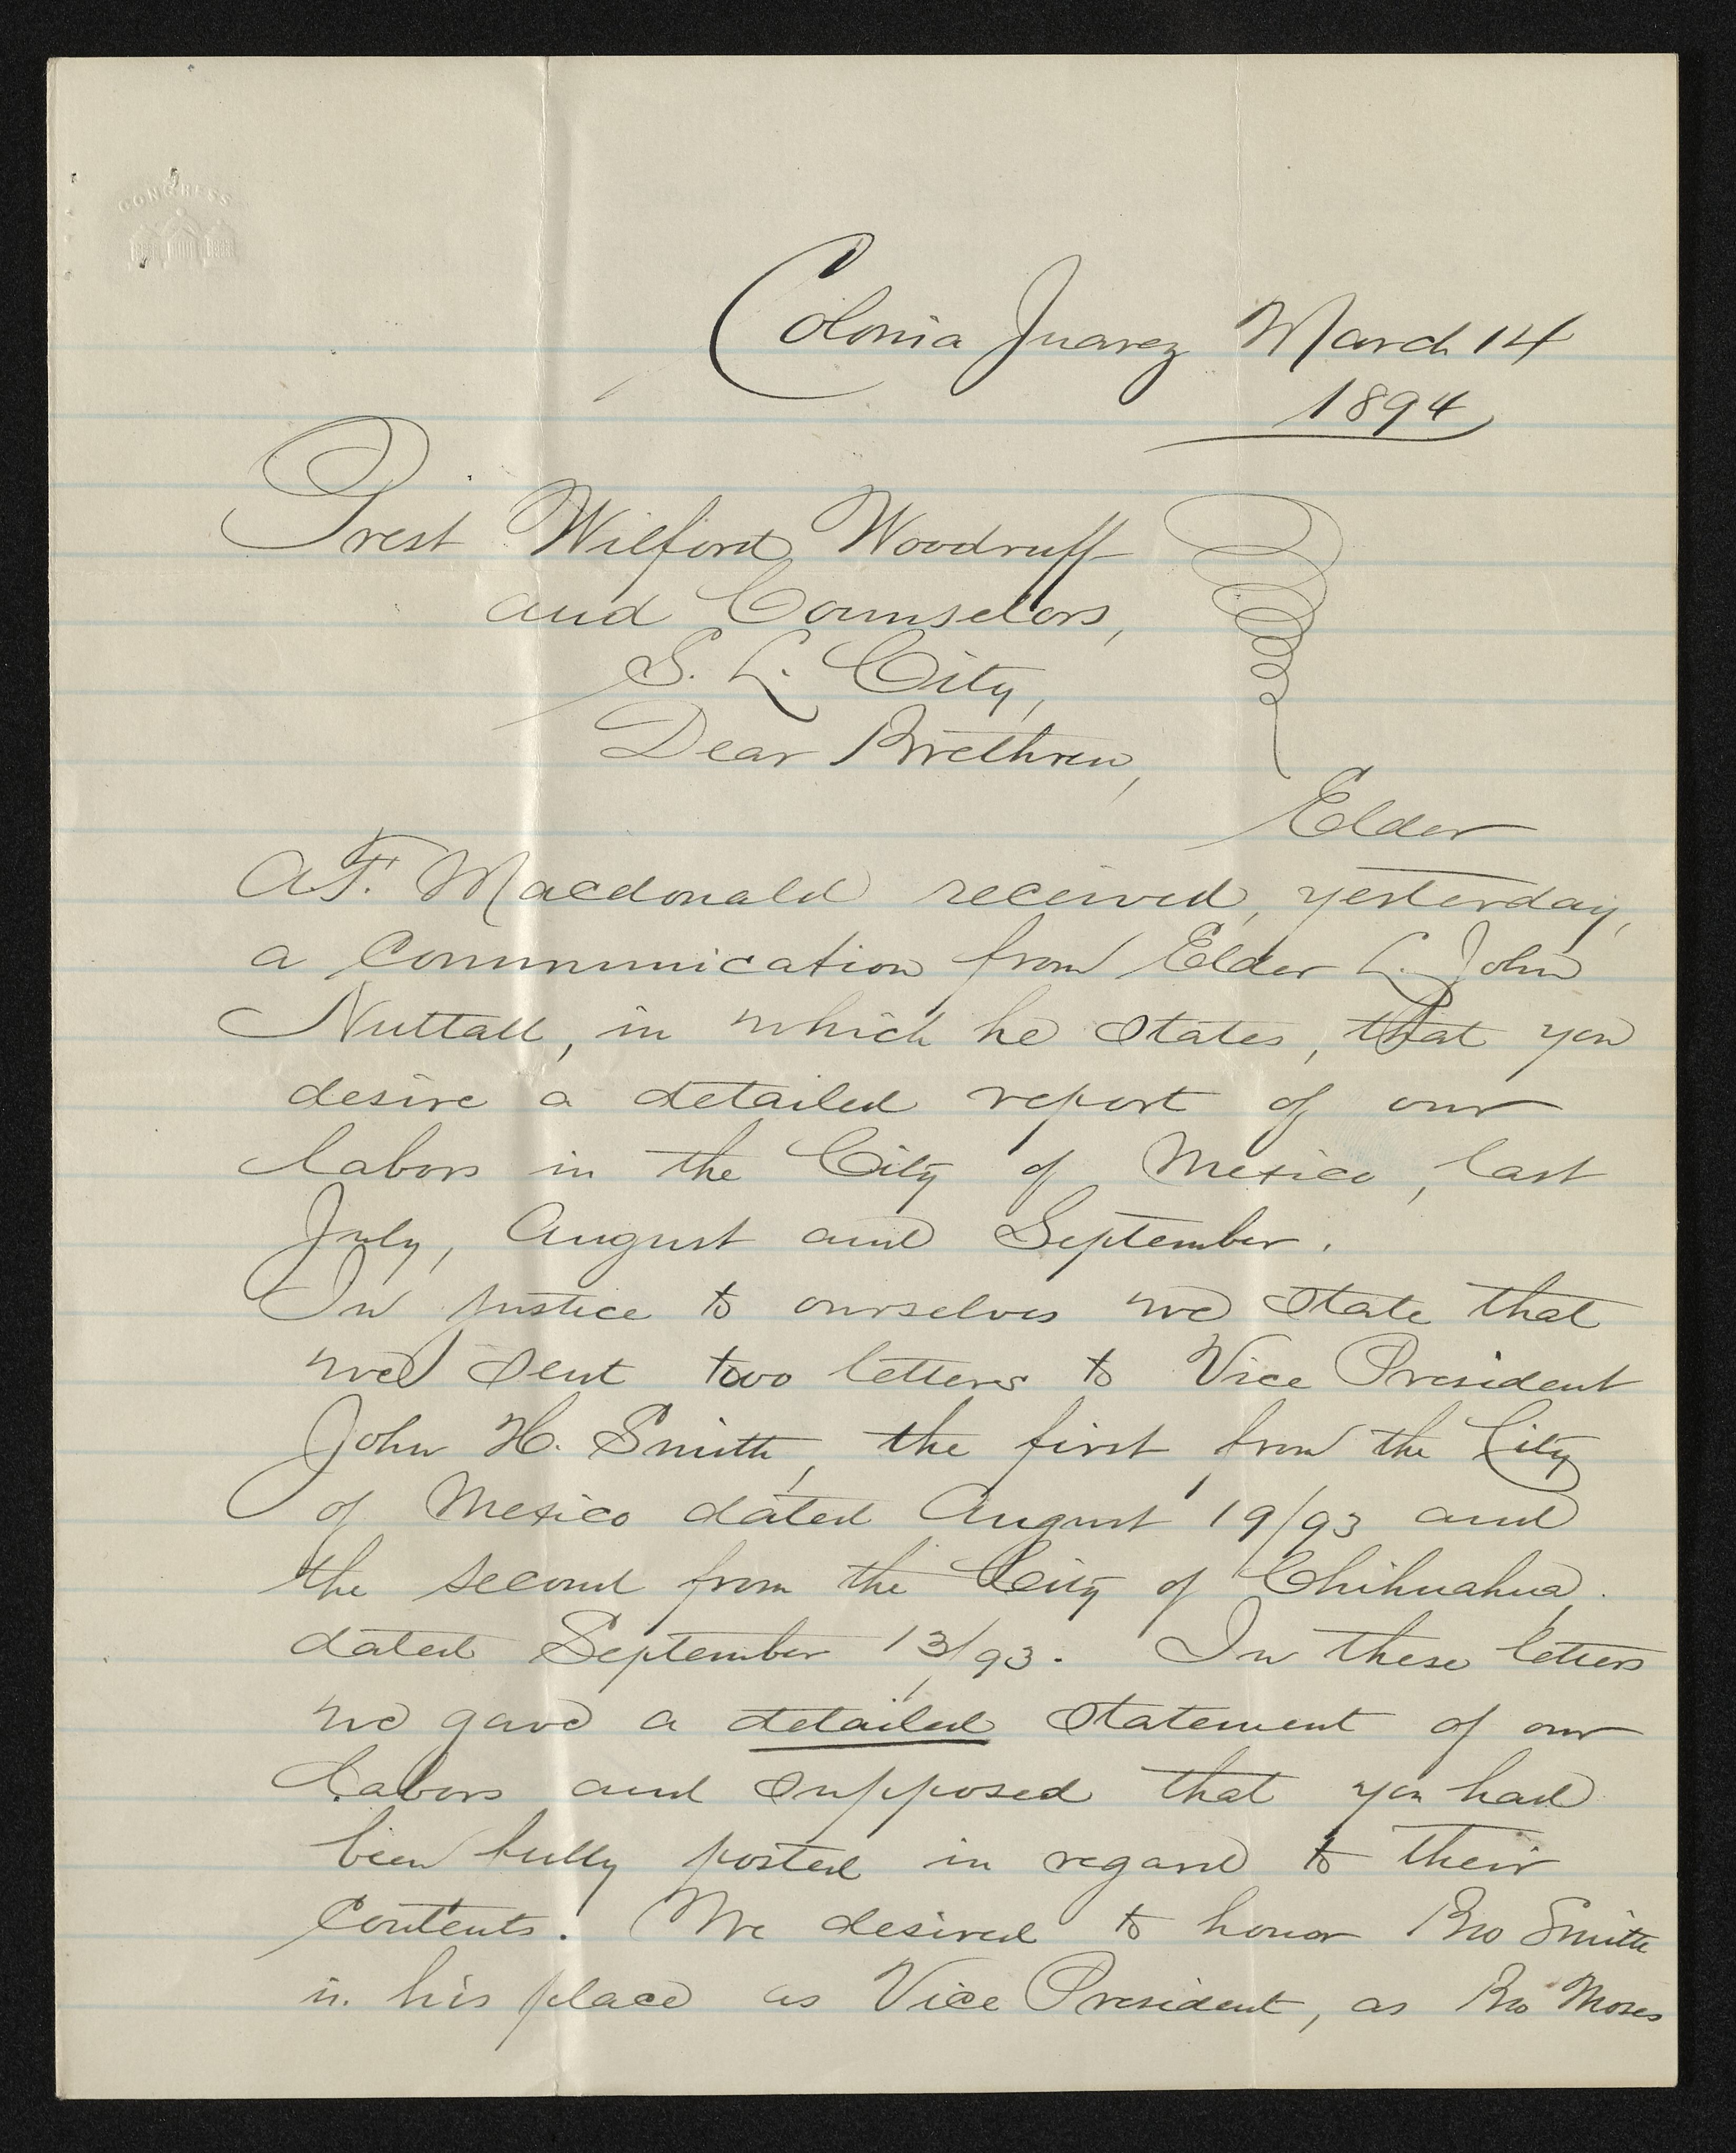 CONGRESS
Colonia Juarez March 14
1894
Prest Wilford Woodruff
and Counselors,
S. L. City,
Dear Brethren,
Elder
A. F. Macdonald received, yesterday,
a communication from Elder L. John
Nuttall, in which he states, that you
desire a detailed report of our
labors in the City of Mexico, last
July, August and September.
In justice to ourselves we state that
we sent two letters to Vice President
John H. Smith, the first from the City
of Mexico dated August 19/93 and
the second from the City of Chihuahua,
dated September 13/93. In these letters
we gave a detailed statement of our
labors and supposed that you had
been fully posted in regard to their
contents. We desired to honor Bro Smith
in his place as Vice President, as Bro Moses